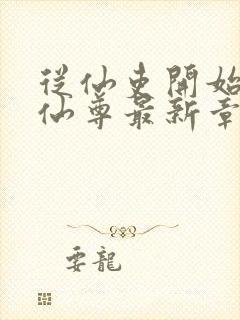 從仙吏開始
仙尊最新章
要龍